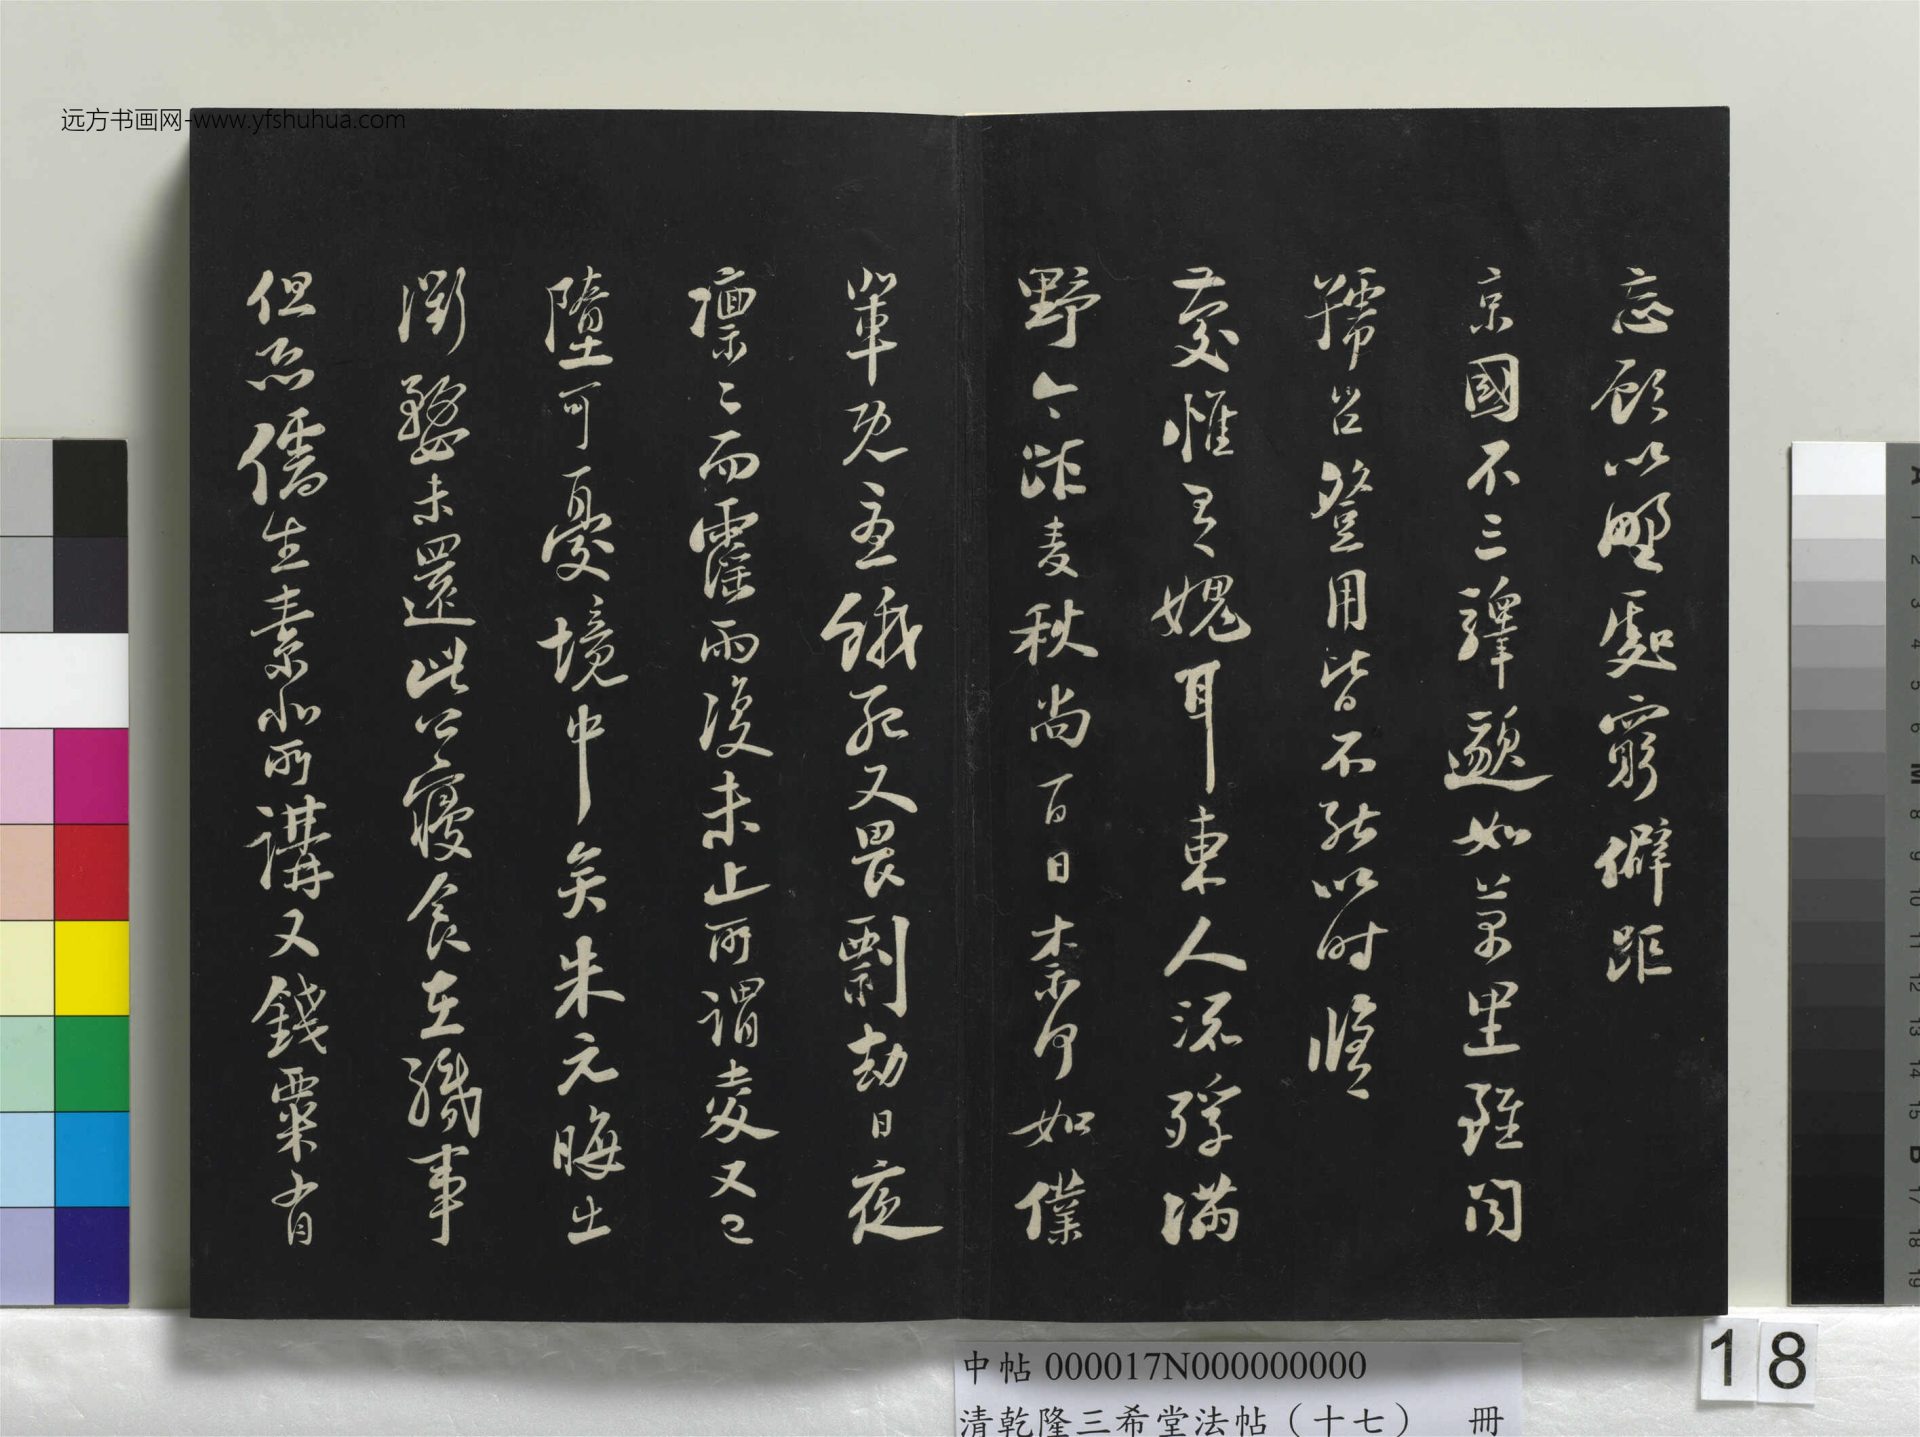 远方书画网-www.yfshuhua.com
忘顧以野處窮僻距
京國不三驛邈如萬里雖聞
號召登用皆不能以時脩
慶惟有媿耳東人流殍滿
野今茲麦秋尚百日奈何如僕
輩既憂餓死又畏剽劫日夜
凛凛而霪雨復未止所謂麦又已
墮可憂境中矣朱元晦出
衢婺未還此公寢食在職事
但恐儒生素非所講又錢粟有
中帖 000017N000000000
清乾隆三希堂法帖（十七） 冊
18
A 1 2 3 4 5 6 M 8 9 10 11 12 13 14 15 B 17 18 19